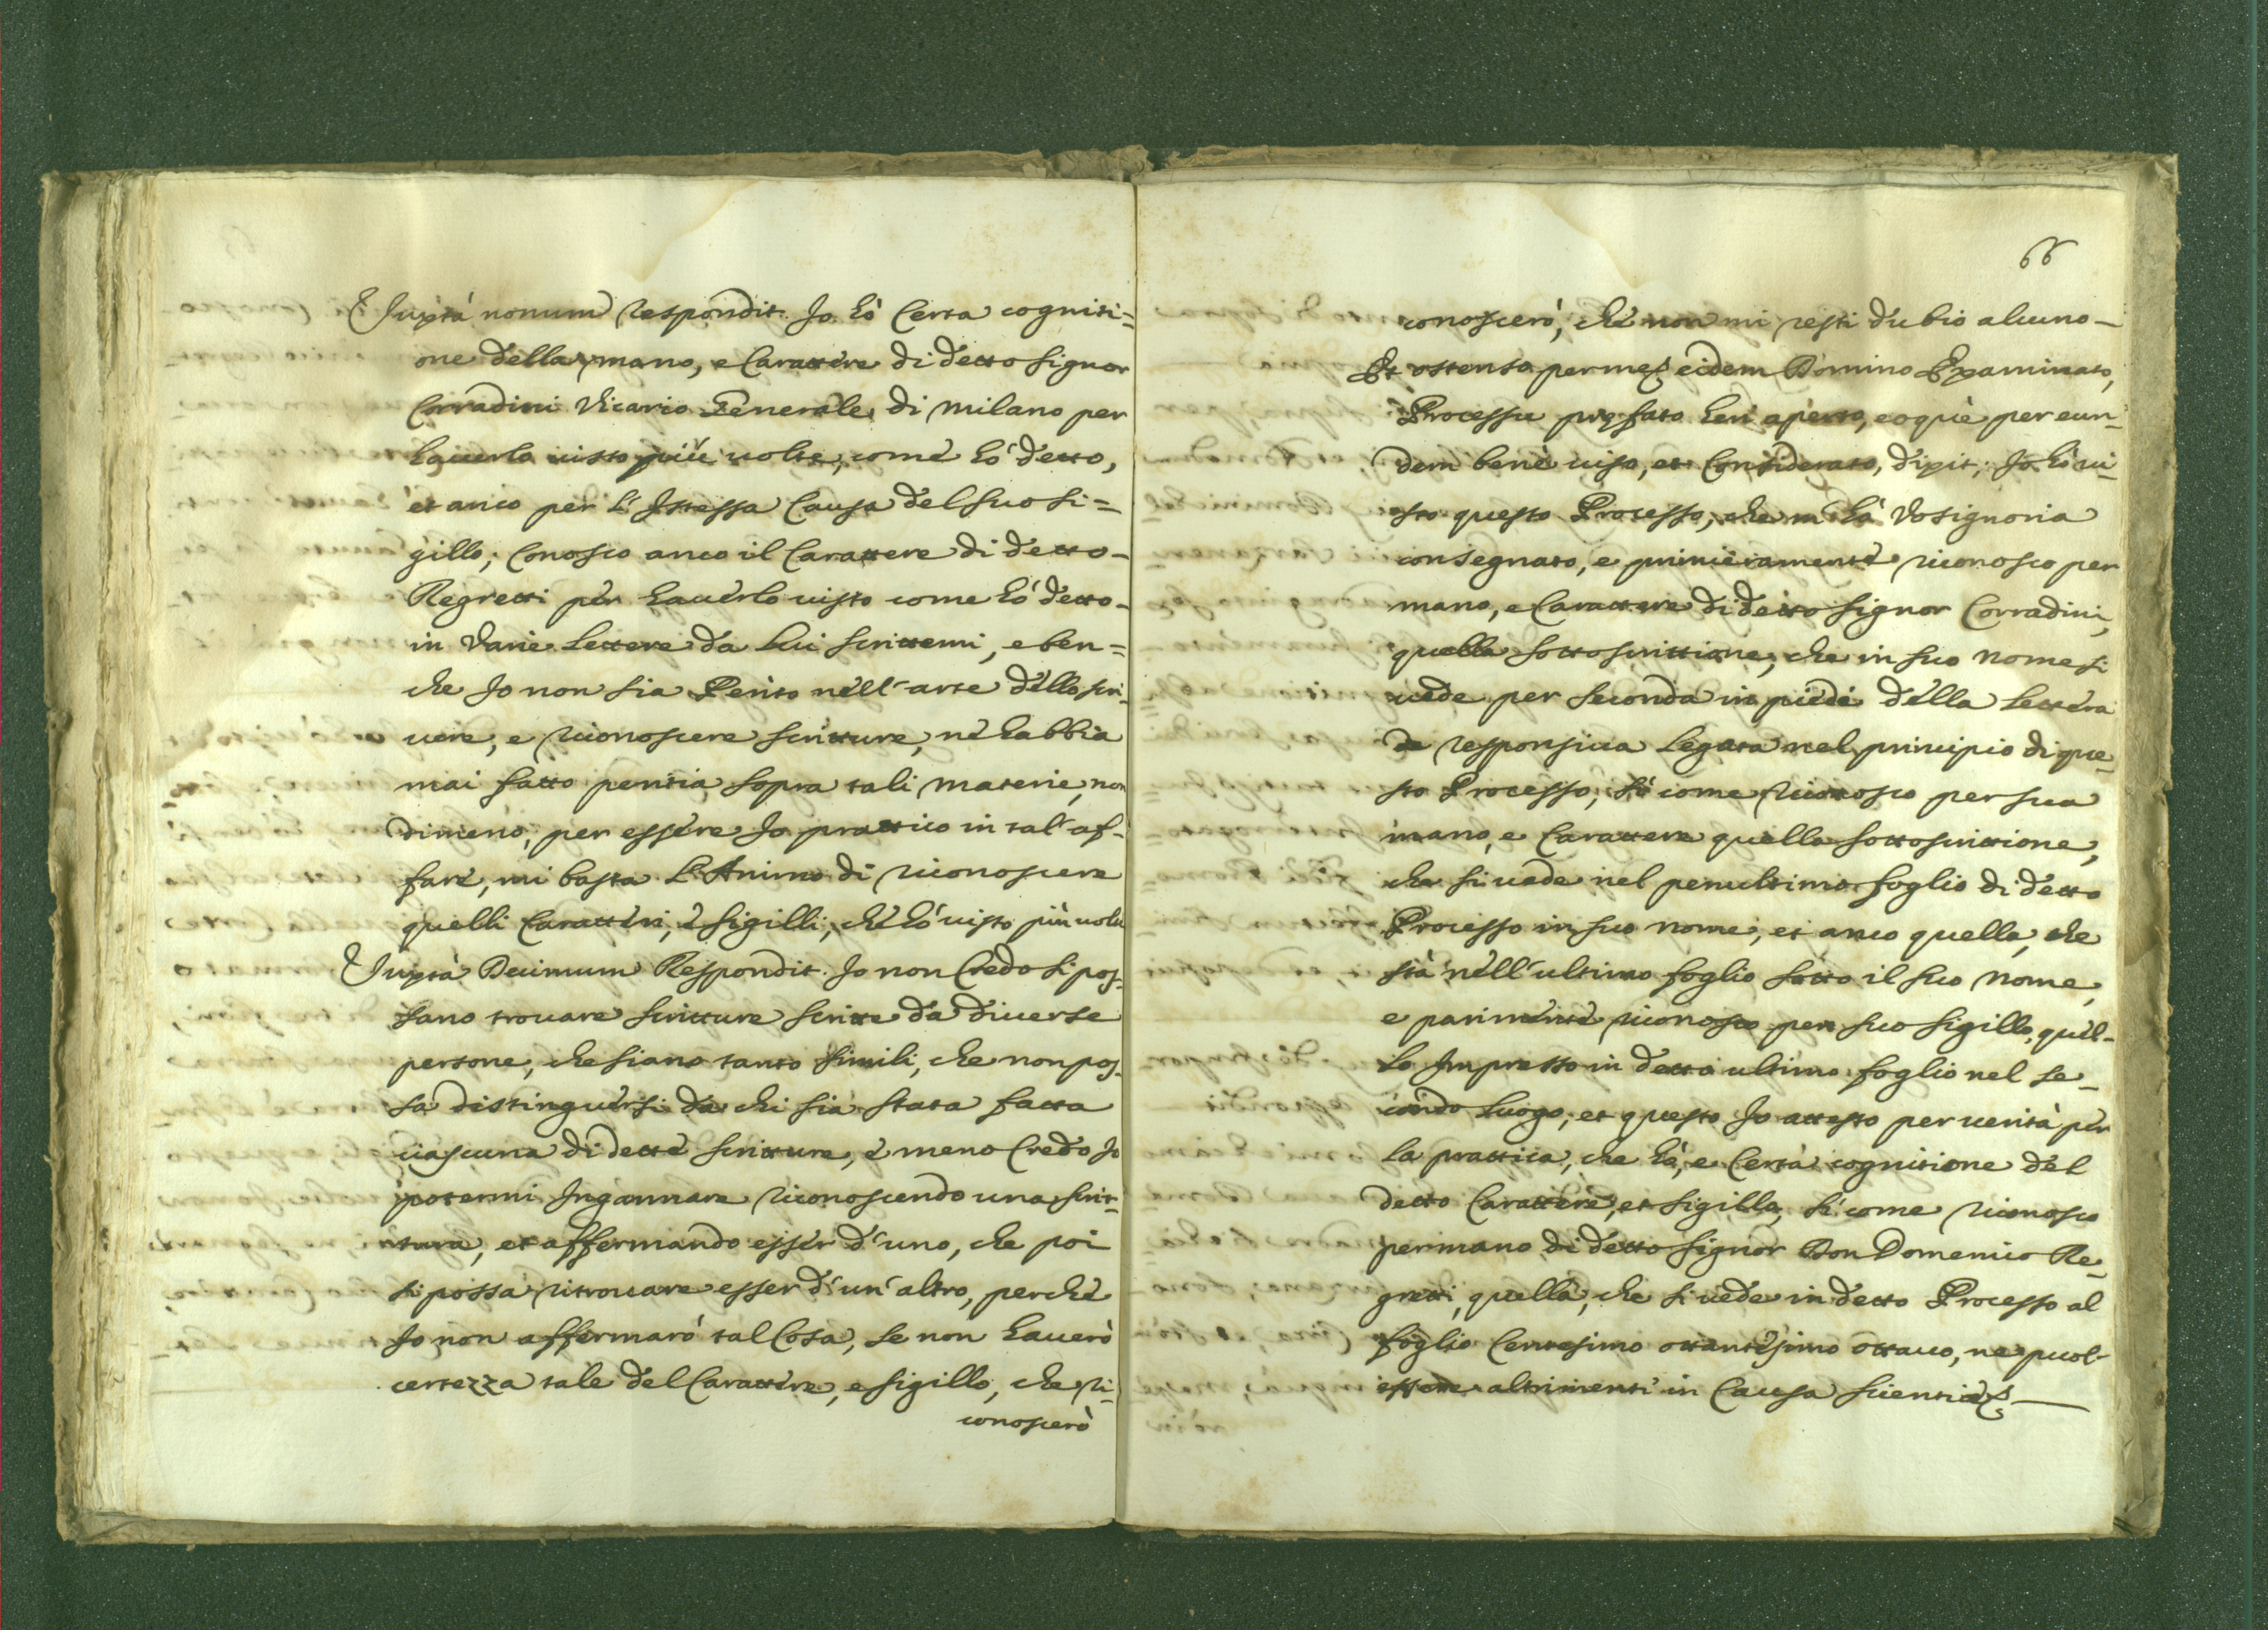 Juxtà nonum respondit. Jo hò Certa cogniti=
one della mano, e Carattere di detto Signor
Corradini Vicario Generale di Milano per
hauerlo uisto più uolte, come hò detto,
et anco per l'Istessa Causa del suo Si=
gillo; Conosco anco il Carattere di detto-
Regretti per hauerlo uisto come hò detto-
in Varie Lettere da lui scrittemi, e ben=
che Jo non sia Perito nell'arte dello scri-
uere, e riconoscere scritture, nè habbia
mai fatto peritia sopra tali materie, non
dimeno, per essere Jo prattico in tal'af-
fare, mi basta L'Animo di riconoscere
quelli Caratteri, e Sigilli, chè hò uisto più uolte
Juxtà Decimum Respondit. Jo non Credo si pos-
sano trouare scritture scritte da diuerse
persone, che siano tanto simili, che non pos-
sa distinguersi da chi sia stata fatta
ciascuna di dette scritture, e meno Credo Jo
potermi Ingannare riconoscendo una scrit-
tura, et affermando esser d'uno, che poi
si possa ritrouare esser d'un'altro, perchè
Jo non affermarò tal Cosa, se non hauerò
certezza tale del Carattere, e Sigillo, che ri-
conoscerò
66
conoscerò, chè non mi resti dubio alcuno-
Et ostenso per me eidem Domino Examinato,
Processu præfato heri aperto, eoquè per eun-
dem benè uiso, et Considerato, dixit; Jo hò ui-
sto questo Processo, che m'hà Vosignoria
consegnato, e primieramente riconosco per
mano, e Carattere di detto Signor Corradini,
quella sottoscrittione, che in suo nome si
uede per seconda in piede della Lettera
responsiua Legata nel principio di que-
sto Processo, sì come riconosco per sua
mano, e Carattere quella sottoscrittione,
che si uede nel penultimo foglio di detto
Processo in suo nome, et anco quella, che
stà nell'ultimo foglio sotto il suo nome,
e parimente riconosco per suo Sigillo, quel-
lo Impresso in detto ultimo foglio nel se-
condo luogo, et questo Jo attesto per uerità per
la prattica, che hò, e Certa cognitione del
detto Carattere, et Sigillo, sì come riconosco
per mano di detto Signor Don Domenico Re-
gretti, quella, che si uede in detto Processo al
foglio Centesimo ottantesimo ottauo, ne puol-
essere altrimenti in Causa scientiæ